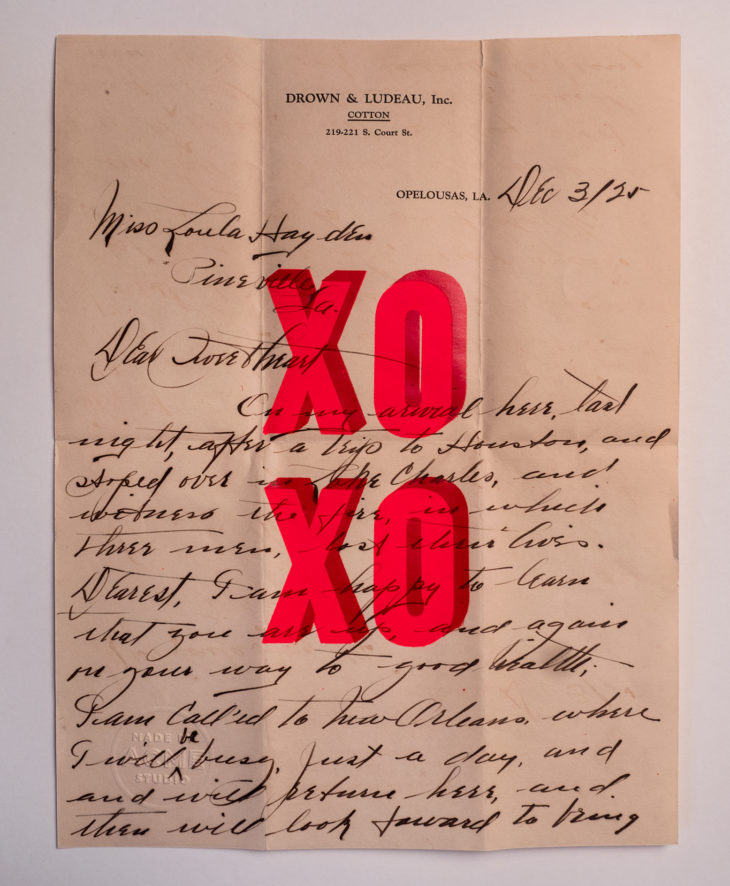 DROWN & LUDEAU, Inc.
COTTON
219-221 S. Court St.
OPELOUSAS, LA. Dec 3/25
Miss Loula Hayden
Pineville
La.
Dear Sweetheart
XO
On my arival here, last
night, after a trip to Houston, and
stoped over in Lake Charles, and
witness the fire, in which
three men, lost their lives.
XO
Dearest, I am happy to learn
that you are up, and again
on your way to good health,
I am Call'ed to New Orleans, where
I will be busy, just a day, and
MADE BY
ACME
STUDIO
and will return here, and
then will look foward to being